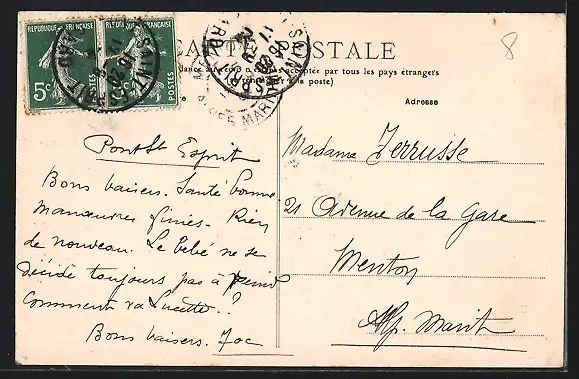 REPUBLIQUE FRANÇAISE REPUBLIQUE FRANÇAISE
5c POSTES POSTES
CARTE POSTALE
pas acceptée par tous les pays étrangers
à la poste)
Adresse
8
Pont St Esprit
Bons baisers. Santé bonne
manœuvres finies - Rien
de nouveau. Le bébé ne se
décide toujours pas à venir
Comment va Lucette ?
Bons baisers.
Madame Terrusse
21 Avenue de la Gare
Menton
Alp. Marit